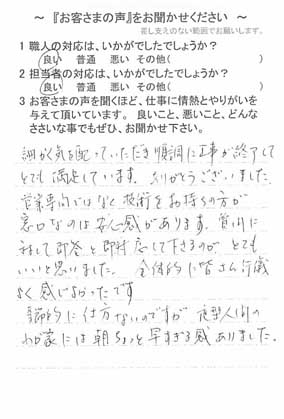 ～ 『お客さまの声』をお聞かせください ～
差し支えのない範囲でお願いします。
1 職人の対応は、いかがでしたでしょうか?
良い 普通 悪い その他( )
2 担当者の対応は、いかがでしたでしょうか?
良い 普通 悪い その他( )
3 お客さまの声を聞くほど、仕事に情熱とやりがいを
与えて頂いています。 良いこと、悪いこと、どんな
ささいな事でもぜひ、お聞かせ下さい。
細かく気を配っていただき順調に工事が終了して
とても満足しています。ありがとうございました。
営業専門ではなく技術をお持ちの方が
窓口なのは安心感があります。質問に
対して即答と即対応して下さるのが とても
いいと思いました。 全体的に皆さん行儀
よく感じよかったです
季節的に仕方ないのですが 夜型人間の
わが家には朝ちょっと早すぎる感ありました。